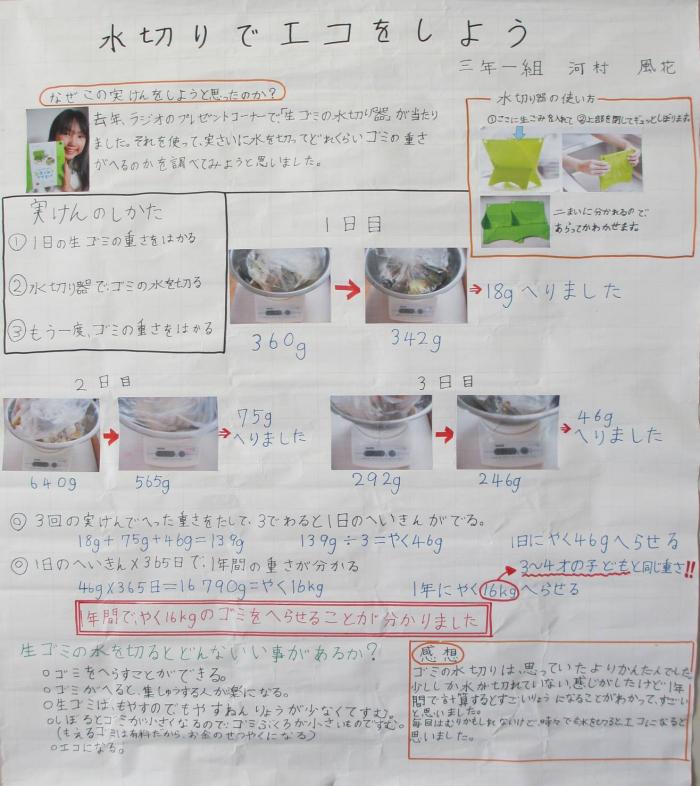 水切りでエコをしよう
三年一組 河村 風花
なぜこの実けんをしようと思ったのか?
去年、ラジオのプレゼントコーナーで「生ゴミの水切り器」が当たり
ました。それを使って、実さいに水を切ってどれくらいゴミの重さ
がへるのかを調べてみようと思いました。
水切り器の使い方
①ここに生ごみを入れて ②上部を閉じてギュッとしぼります。
二まいに分かれるので、
あらってかわかせます。
実けんのしかた
①1日の生ゴミの重さをはかる
②水切り器で、ゴミの水を切る
③もう一度、ゴミの重さをはかる
1日目
360g
342g
18gへりました
2日目
640g
565g
75g
へりました
3日目
292g
246g
46g
へりました
◎3回の実けんでへった重さをたして、3でわると1日のへいきんがでる。
18g+75g+46g=139g 139g÷3=やく46g 1日にやく46gへらせる
◎1日のへいきん×365日で、1年間の重さが分かる
3〜4才の子どもと同じ重さ!!
46g×365日=16790g=やく16kg 1年にやく16kgへらせる
1年間で、やく16kgのゴミをへらせることが分かりました
生ゴミの水を切るとどんないい事があるか?
○ゴミをへらすことができる。
○ゴミがへると、集しゅうする人が楽になる。
○生ゴミは、もやすのでもやすねんりょうが少なくてすむ。
○しぼるとゴミが小さくなるので、ゴミぶくろが小さいものですむ。
(もえるゴミは有料だから、お金のせつやくになる)
○エコになる。
感想
ゴミの水切りは、思っていたよりかんたんでした。
少ししか水が切れていない感じがしたけど1年
間で計算するとすごいりょうになることがわかって、すごい
と思いました。
毎日はむりかもしれないけど、時々でも水を切るとエコになると
思いました。